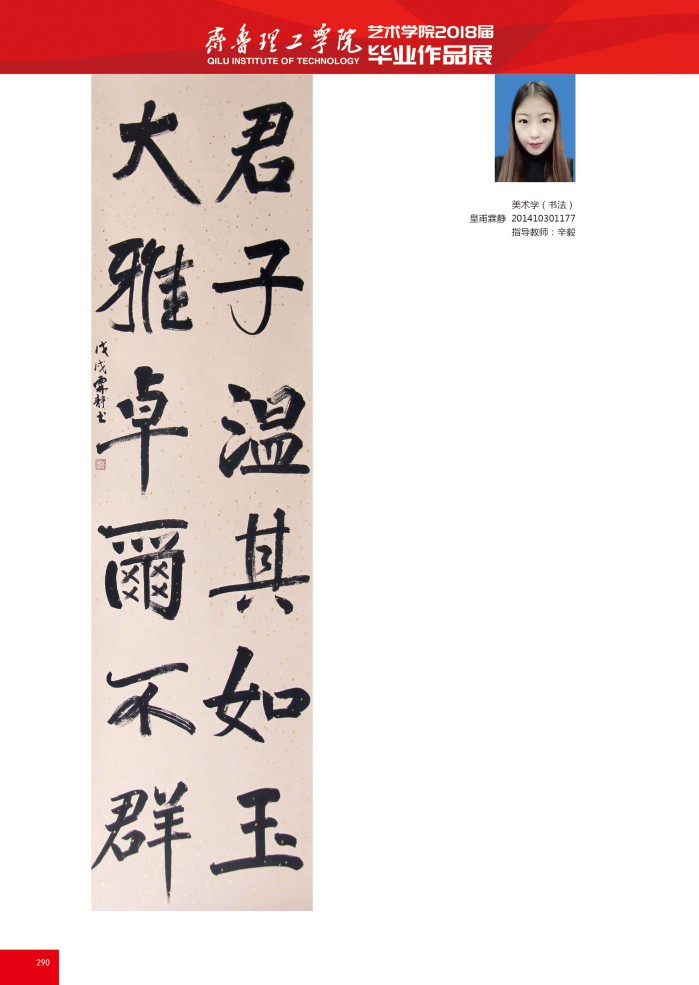 齊魯理工學院
QILU INSTITUTE OF TECHNOLOGY
艺术学院2018届
毕业作品展
君子温其如玉
大雅卓爾不群
戊戌霖静书
美术学（书法）
皇甫霖静 201410301177
指导教师：辛毅
290